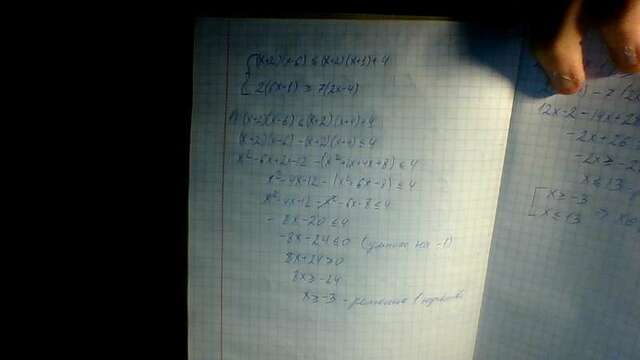 (x+2)(x-6) ≤ (x+2)(x+1)+4
2(6x-1) ≥ 7(2x-4)
1) (x+2)(x-6) ≤ (x+2)(x+4)+4
(x+2)(x-6) - (x+2)(x+4) ≤ 4
x²-6x+2x-12 - (x²+2x+4x+8) ≤ 4
x²-4x-12 - (x²+6x-8) ≤ 4
x²-4x-12-x²-6x-8 ≤ 4
- 8x-20 ≤ 4
-8x-24 ≤ 0 (умнож на -1)
8x+24 ≥ 0
8x ≥ -24
x ≥ -3 - решение 1
- 7(2x
12x-2-14x+28
-2x+26
-2x ≥ -2
x ≤ 13
x ≥ -3
x ≤ 13 ⇒ x